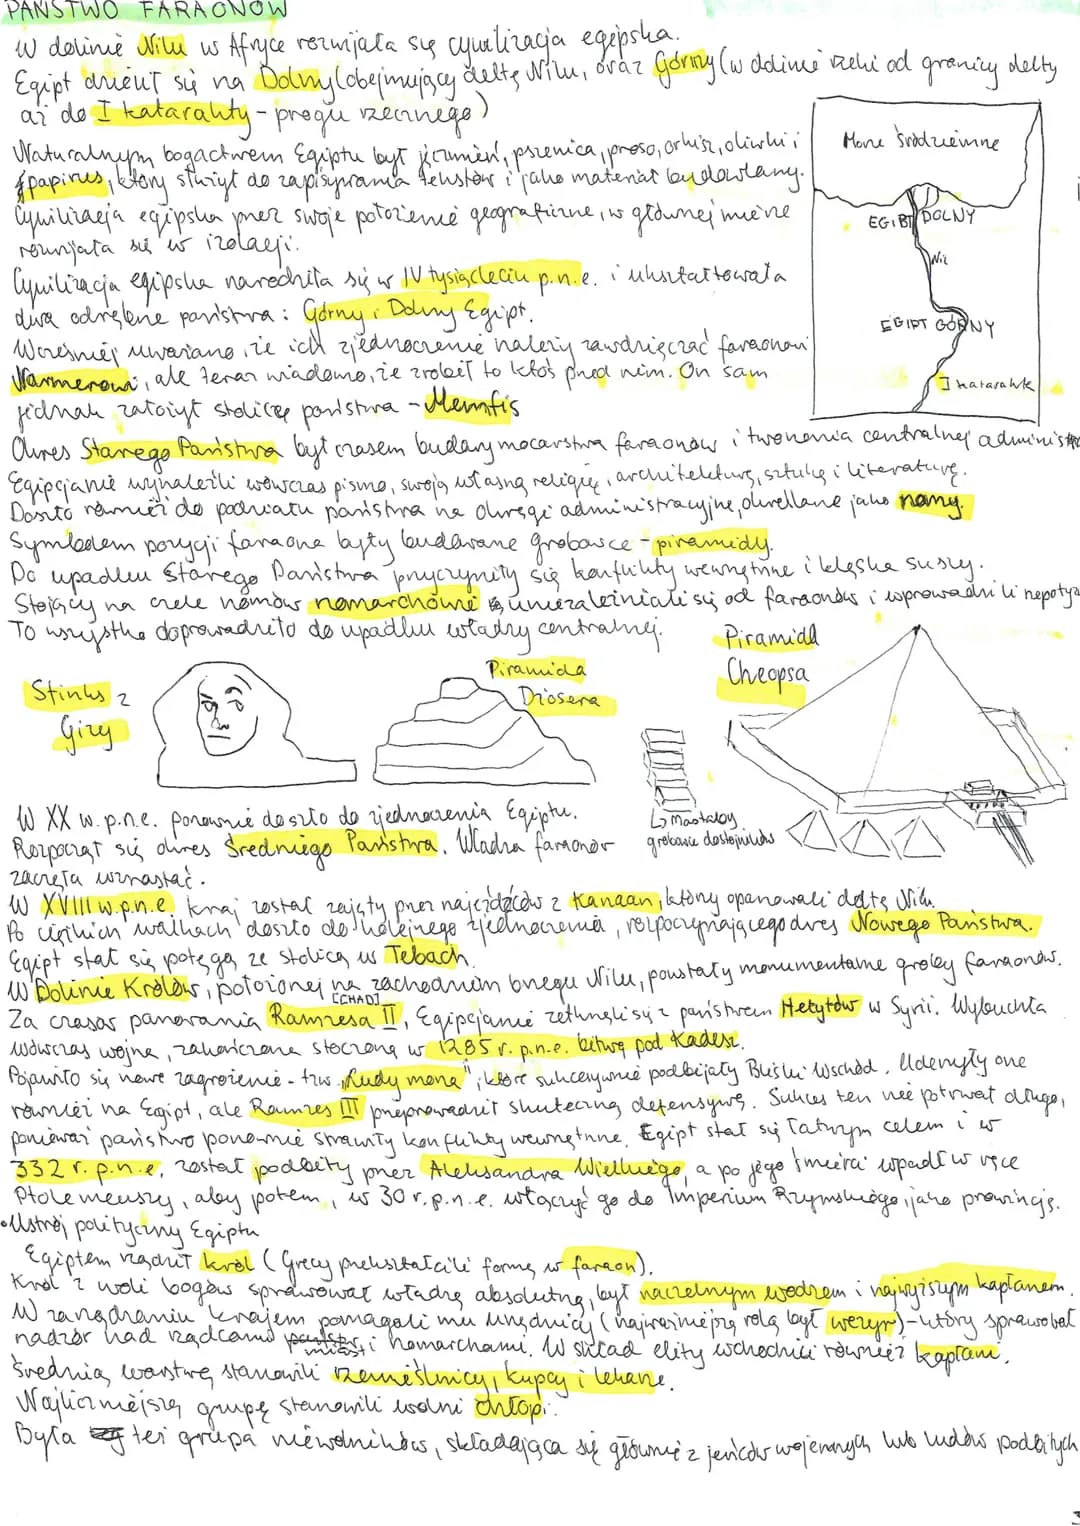 PAŃSTWO FARAONÓW
W dolinie Nilu w Afryce rozwijała się cywilizacja egipska.
Egipt dzielił się na Dolny (obejmujący deltę Nilu, oraz Górny (w dolinie rzeki od granicy delty
aż do I katarakty - progu rzecznego)
Naturalnym bogactwem Egiptu był jęczmień, pszenica, proso, orkisz, oliwki i
papirus, który służył do zapisywania tekstów i jako materiał budowlany.
Cywilizacja egipska przez swoje położenie geograficzne, w głównej mierze
rozwijała się w izolacji.
Cywilizacja egipska narodziła się w IV tysiącleciu p.n.e. i ukształtowała
dwa odrębne państwa: Górny i Dolny Egipt.
Wcześniej uważano, że ich zjednoczenie należy zawdzięczać faraonowi
Narmerowi, ale teraz wiadomo, że zrobił to ktoś przed nim. On sam
jednak założył stolicę państwa - Memfis
Morze Śródziemne
EGIBT DOLNY
Nil
EGIPT GÓRNY
I katarakta
Okres Starego Państwa był czasem budowy mocarstwa faraonów i tworzenia centralnej administra
Egipcjanie wynaleźli wówczas pismo, swoją własną religię, architekturę, sztukę i literaturę.
Doszło również do podziału państwa na okręgi administracyjne, określane jako nomy.
Symbolem pozycji faraona były budowane grobowce - piramidy.
Do upadku Starego Państwa przyczyniły się konflikty wewnętrzne i klęska suszy.
Stojący na czele nomów nomarchowie uniezależniali się od faraonów i wprowadzili nepotyz
To wszystko doprowadziło do upadku władzy centralnej.
Sfinks z
Gizy
Piramida
Dżosera
Piramida
Cheopsa
↳ Mastaby
grobowce dostojników
W XX w. p.n.e. ponownie doszło do zjednoczenia Egiptu.
Rozpoczął się okres Średniego Państwa. Władza faraonów
zaczęła wzrastać.
W XVIII w.p.n.e. kraj został zajęty przez najeźdźców z Kanaan, który opanowali deltę Nilu.
Po ciężkich walkach doszło do kolejnego zjednoczenia, rozpoczynającego okres Nowego Państwa.
Egipt stał się potęgą ze stolicą w Tebach.
W Dolinie Królów, położonej na zachodnim brzegu Nilu, powstały monumentalne groby faraonów.
[CHAD]
Za czasów panowania Ramzesa II, Egipcjanie zetknęli się z państwem Hetytów w Syrii. Wybuchła
wówczas wojna, zakończona stoczoną w 1285 r. p.n.e. bitwą pod Kadesz.
Pojawiło się nowe zagrożenie - tzw. "ludy morza", które sukcesywnie podbijały Bliski Wschód. Uderzyły one
również na Egipt, ale Ramzes III przeprowadził skuteczną defensywę. Sukces ten nie potrwał długo,
ponieważ państwo ponownie strawiły konflikty wewnętrzne. Egipt stał się łatwym celem i w
332 r. p.n.e. został podbity przez Aleksandra Wielkiego, a po jego śmierci wpadł w ręce
Ptolemeuszy, aby potem, w 30 r. p.n.e. włączyć go do Imperium Rzymskiego, jako prowincję.
• Ustrój polityczny Egiptu
Egiptem rządził król (Grecy przekształcili formę w faraon).
Król z woli bogów sprawował władzę absolutną, był naczelnym wodzem i najwyższym kapłanem.
W zarządzaniu krajem pomagali mu urzędnicy (najważniejszą rolą był wezyr) - który sprawował
nadzór nad rządcami miast i nomarchami. W skład elity wchodzili również kapłani.
Średnią warstwę stanowili rzemieślnicy, kupcy i lekarze.
Najliczniejszą grupę stanowili wolni chłopi.
Była też grupa niewolników, składająca się głównie z jeńców wojennych lub ludów podbitych